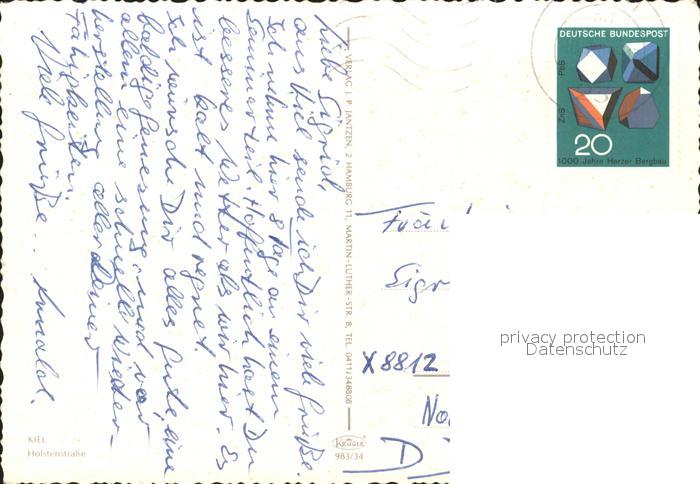 Liebe Sigrid,
aus Kiel sende ich Dir viele Grüße.
Ich nehme hier 8 Tage an einem
Seminar teil. Hoffentlich hast Du
besseres Wetter als wir hier. Es
ist kalt und regnet.
Ich wünsche Dir alles Gute, eine
baldige Genesung und vor
allem eine schnelle Wieder-
herstellung aller Deiner
Fähigkeiten.
Viele Grüße..
KIEL
Holstenstraße
VERLAG I. P. JANTZEN, 2 HAMBURG 11, MARTIN-LUTHER-STR. 8, TEL. 0411/348808
KRÜGER
983/34
DEUTSCHE BUNDESPOST
PbS
ZnS
20
1000 Jahre Harzer Bergbau
Sigr
X 8812
No
D
privacy protection
Datenschutz